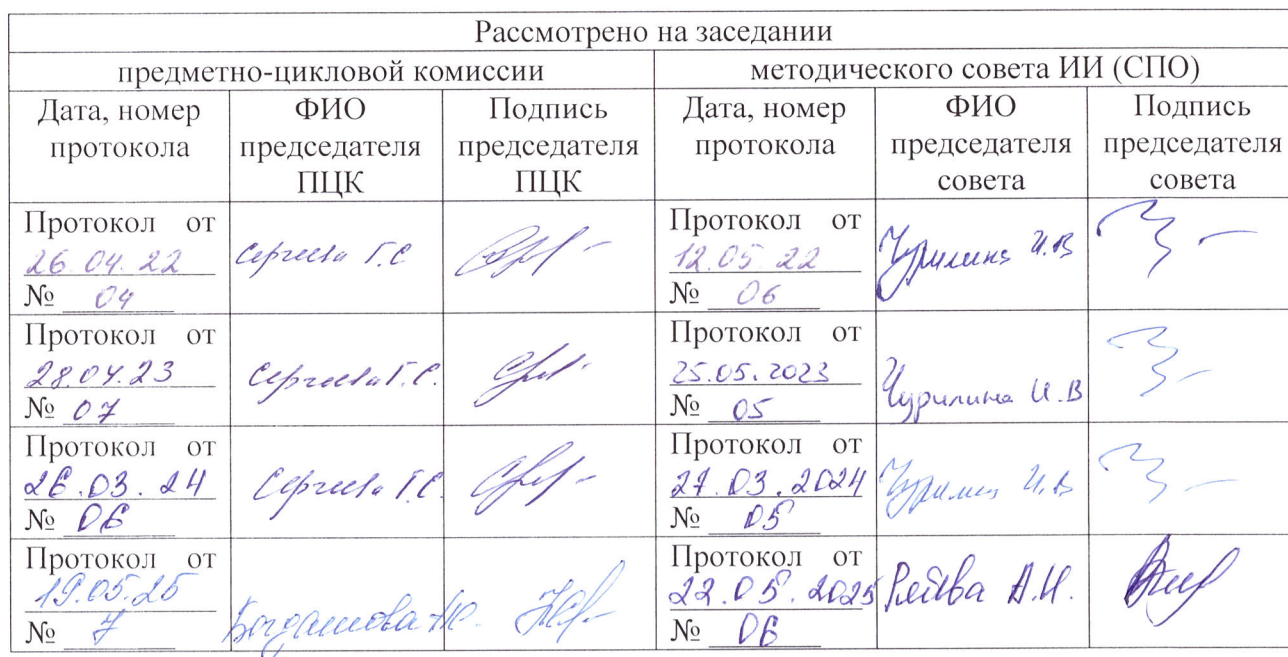 Рассмотрено на заседании
предметно-цикловой комиссии методического совета ИИ (СПО)
Дата, номер протокола
ФИО председателя ПЦК
Подпись председателя ПЦК
Дата, номер протокола
ФИО председателя совета
Подпись председателя совета
Протокол от
26.04.22
№ 04
Сергеева Г.С
Протокол от
12.05.22
№ 06
Чурилина И.В
Протокол от
28.04.23
№ 07
Сергеева Г.С.
Протокол от
25.05.2023
№ 05
Чурилина И.В
Протокол от
26.03.24
№ 06
Сергеева Г.С.
Протокол от
27.03.2024
№ 05
Чурилина И.В
Протокол от
19.05.25
№ 7
Протокол от
22.05.2025
№ 06
А.И.